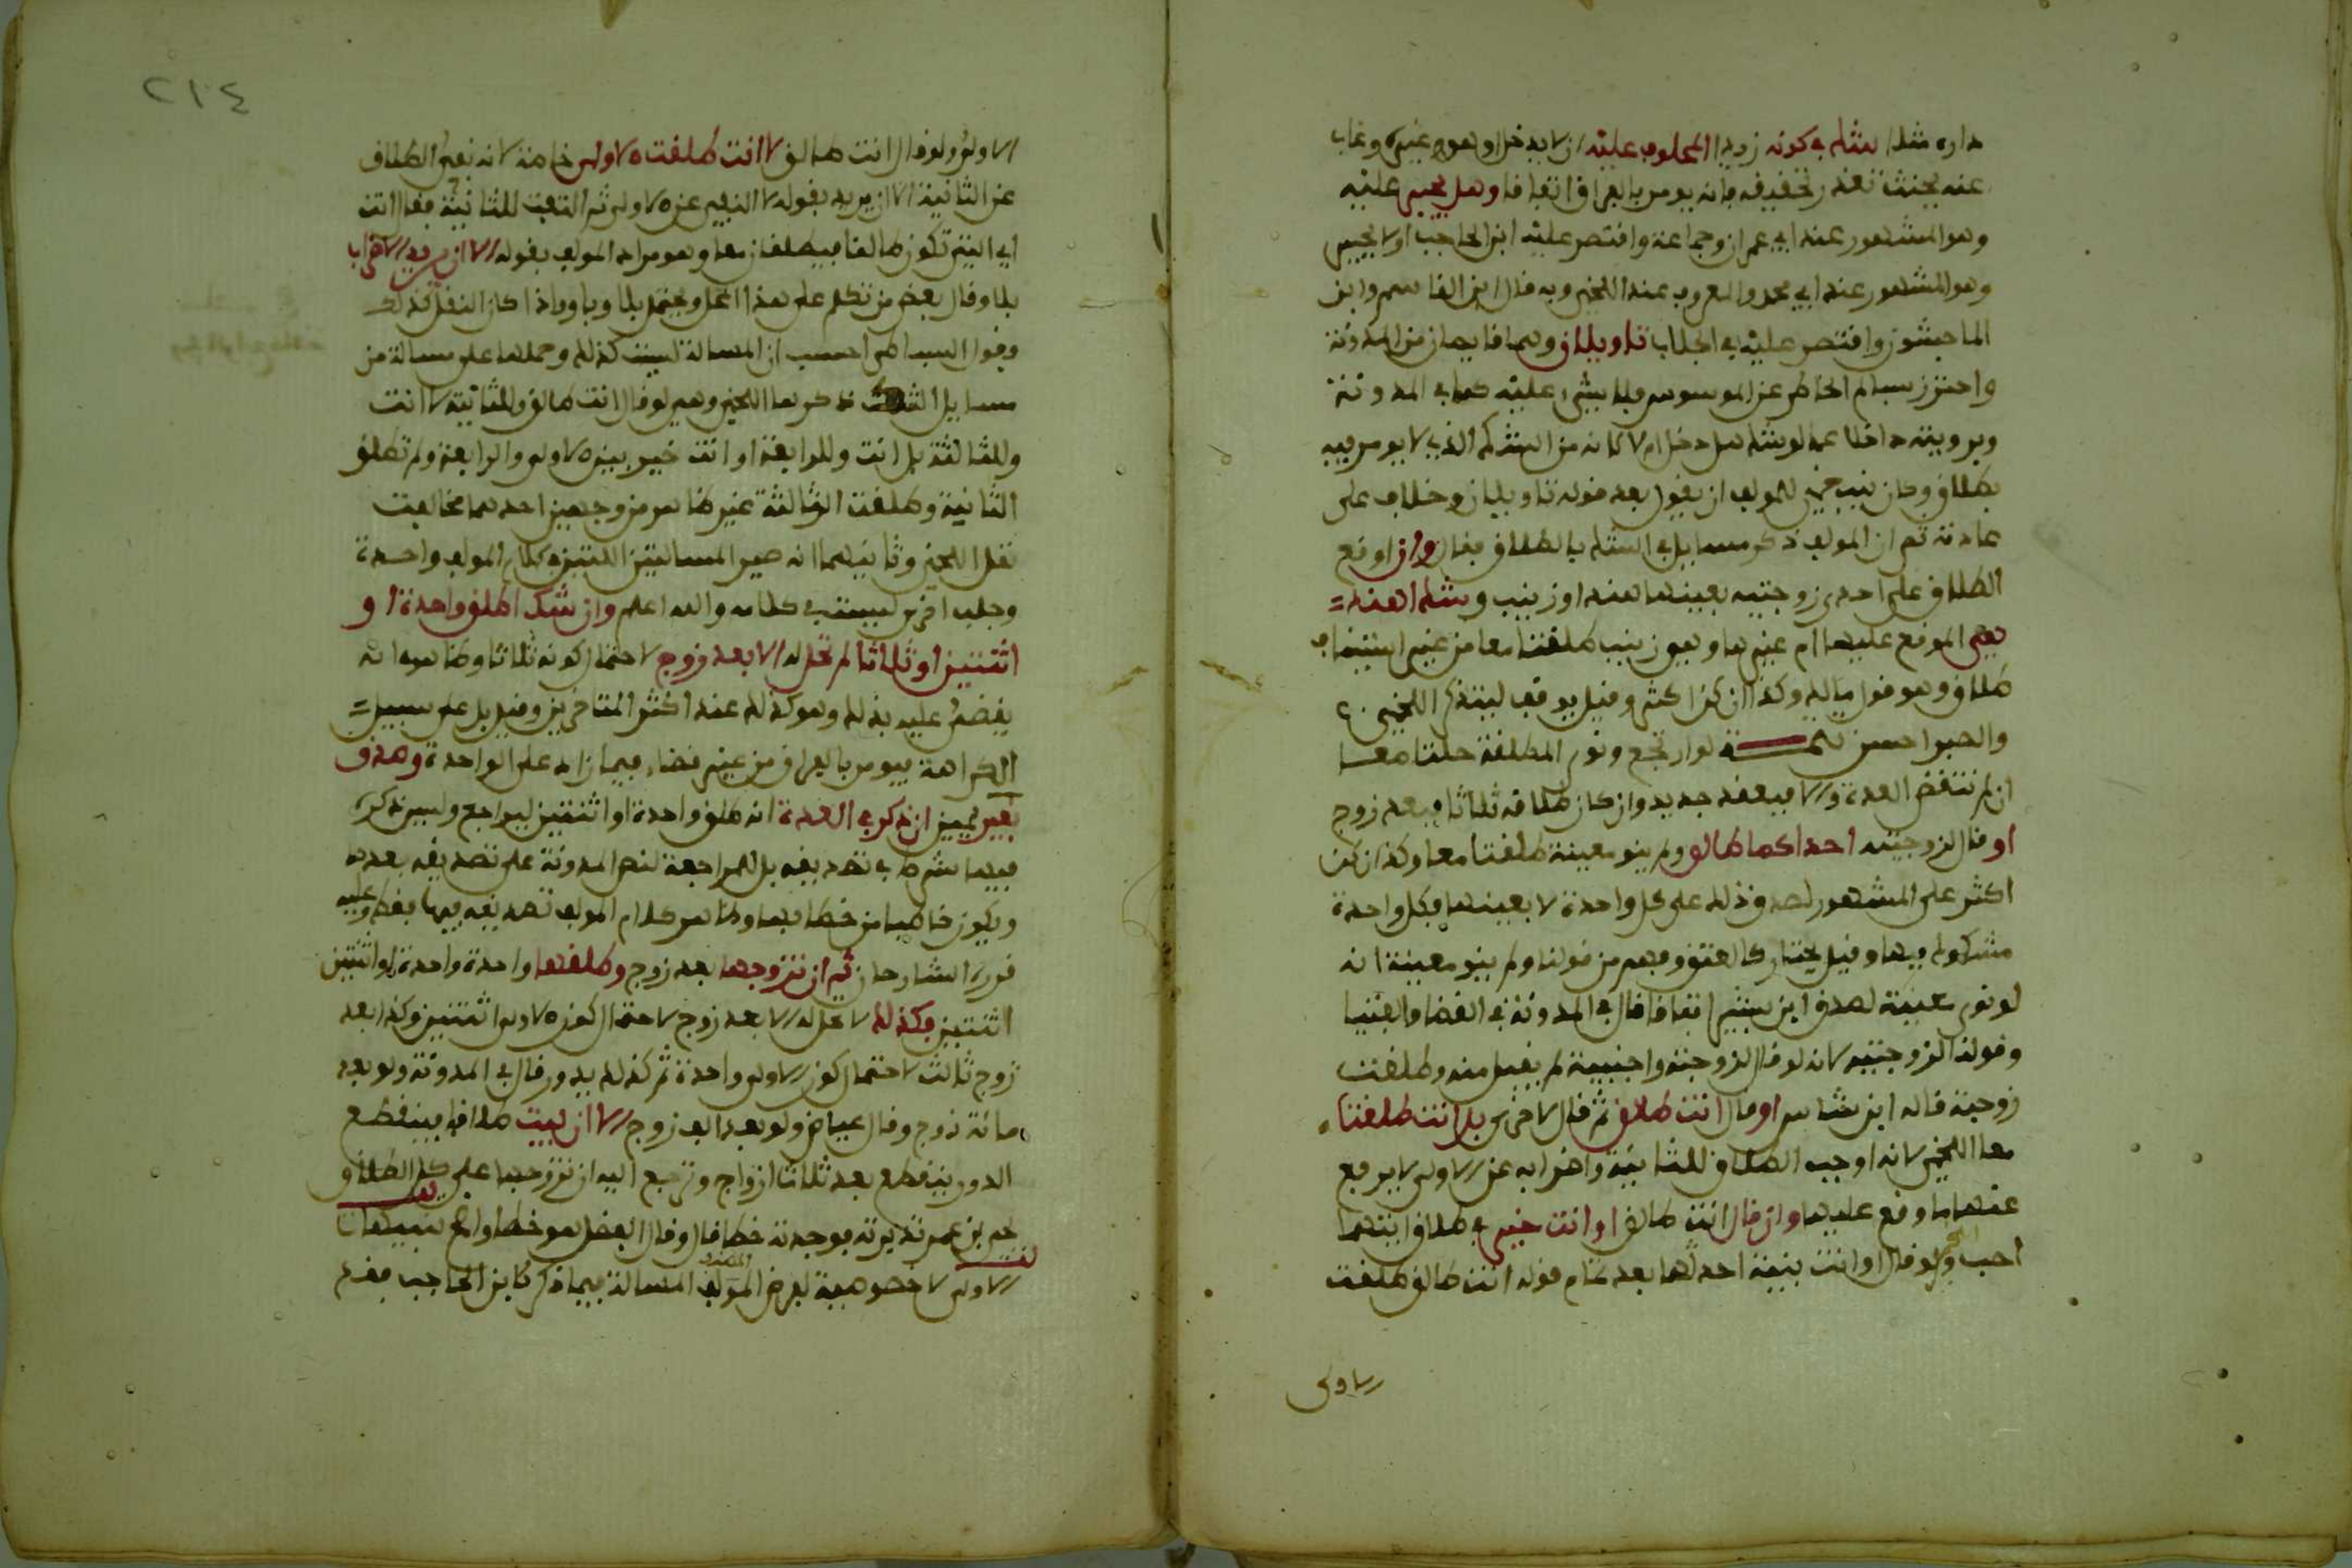 داره مثلا بشك في كونه زيدا المحلوف عليه ان لا يدخل او هو غيره وغاب
عنه بحيث تعذر تحقيقه فانه يومر بالفراق اتفاقا وهل يجبر عليه
وهو المشهور عند ابي عمران وجماعة واقتصر عليه ابن الحاجب او لا يجبر
وهو المشهور عند ابي محمد والمعروف عند اللخمي وبه قال ابن القاسم وابن
الماجشون واقتصر عليه في الجلاب تاويلان وهما قايمان من المدونة
واحترز بسالم الخاطر عن الموسوس فلا شيء عليه كما في المدونة
وبرويته داخلا عما لو شك هل دخل ام لا فانه من الشك الذي لا يومر فيه
بطلاق وكان ينبغي للمولف ان يقول بعد قوله تاويلان وخلاف على
عادته ثم ان المولف ذكر مسايل في الشك بالطلاق فقال وان اوقع
الطلاق على احدى زوجتيه بعينها هند او زينب وشك اهند
هي الموقع عليها ام غيرها وهو زينب طلقتا معا من غير استيناف
طلاق وهو قول مالك وكذا ان كن اكثر وقيل يوقف ليتذكر اللخمي
والصبر احسن تتمة لو ارتجع ونوى المطلقة حلتا معا
ان لم تنقض العدة والا فبعقد جديد وان كان طلاقه ثلاثا فبعد زوج
او قال لزوجتيه احداكما طالق ولم ينو معينة طلقتا معا وكذا ان كن
اكثر على المشهور لصدق ذلك على كل واحدة لا بعينها فكل واحدة
مشكوك فيها وقيل يختار كالعتق وفهم من قولنا ولم ينو معينة انه
لو نوى معينة لصدق ابن بشير اتفاقا قال في المدونة في القضا والفتيا
وقولنا لزوجتيه لانه لو قال لزوجته واجنبية لم يقبل منه وطلقت
زوجته قاله ابن شاس او قال انت طالق ثم قال لاخرى بل انت طلقتا
معا اللخمي لانه اوجب الطلاق للثانية واضرابه عن الاولى لا يرفع
عنها ما وقع عليها وان قال انت طالق او انت خير في طلاق ايتهما
احب ولو قال او انت بنية احدثها بعد تمام قوله انت طالق طلقت
الاولى
٢١٤
الاولى ولو قال انت طالق لا انت طلقت الاولى خاصة لانه نفى الطلاق
عن الثانية الا ان يريد بقوله لا النفي عن الاولى ثم التفت للثانية فقال انت
اي التي تكون طالقا فيطلقان معا وهو مراد المولف بقوله الا ان يريد الاضراب
بلا وقال بعض من تكلم على هذا المحل ويحتمل بلا وباو واذا كان النقل كذلك
وقول البساطي احسب ان المسالة ليست كذلك وحملها على مسالة من
مسايل الشك ذكرها اللخمي وهي لو قال انت طالق وللثانية لا انت
وللثالثة بل انت وللرابعة او انت خير بين الاولى والرابعة ولم تطلق
الثانية وطلقت الثالثة غير ظاهر من وجهين احدهما مخالفة
نقل اللخمي وثانيهما انه صير المسالتين اللتين في كلام المولف واحدة
وجلب اخرى ليست في كلامه والله اعلم وان شك اطلق واحدة او
اثنتين او ثلاثا لم تحل له الا بعد زوج لاحتمال كونه ثلاثا وظاهره انه
يقضى عليه بذلك وهو كذلك عند اكثر المتاخرين وقيل بل على سبيل
الكراهة فيومر بالفراق من غير قضاء فيما زاد على الواحدة وصدق
بغير يمين ان ذكر في العدة انه طلق واحدة او اثنتين ليراجع وليس ذكره
فيها شرطا في تصديقه بل للمراجعة لنص المدونة على تصديقه بعدها
ويكون خاطبا من الخطاب وظاهر كلام المولف تصديقه فيها فقط وعليه
قرره الشارحان ثم ان تزوجها بعد زوج وطلقها واحدة واحدة او اثنتين
اثنتين فكذلك لا تحل له الا بعد زوج لاحتمال كون الاولى اثنتين وكذا بعد
زوج ثالث لاحتمال كون الاولى واحدة ثم كذلك يدور قال في المدونة ولو بعد
مائة زوج وقال عياض ولو بعد الف زوج الا ان يبت طلاقها فينقطع
الدور ينقطع بعد ثلاثة ازواج وترجع اليه ان تزوجها على كل الطلاق
الاولى لا خصوصية لفرض المولف المسالة فيما ذكر كابن الحاجب فقد